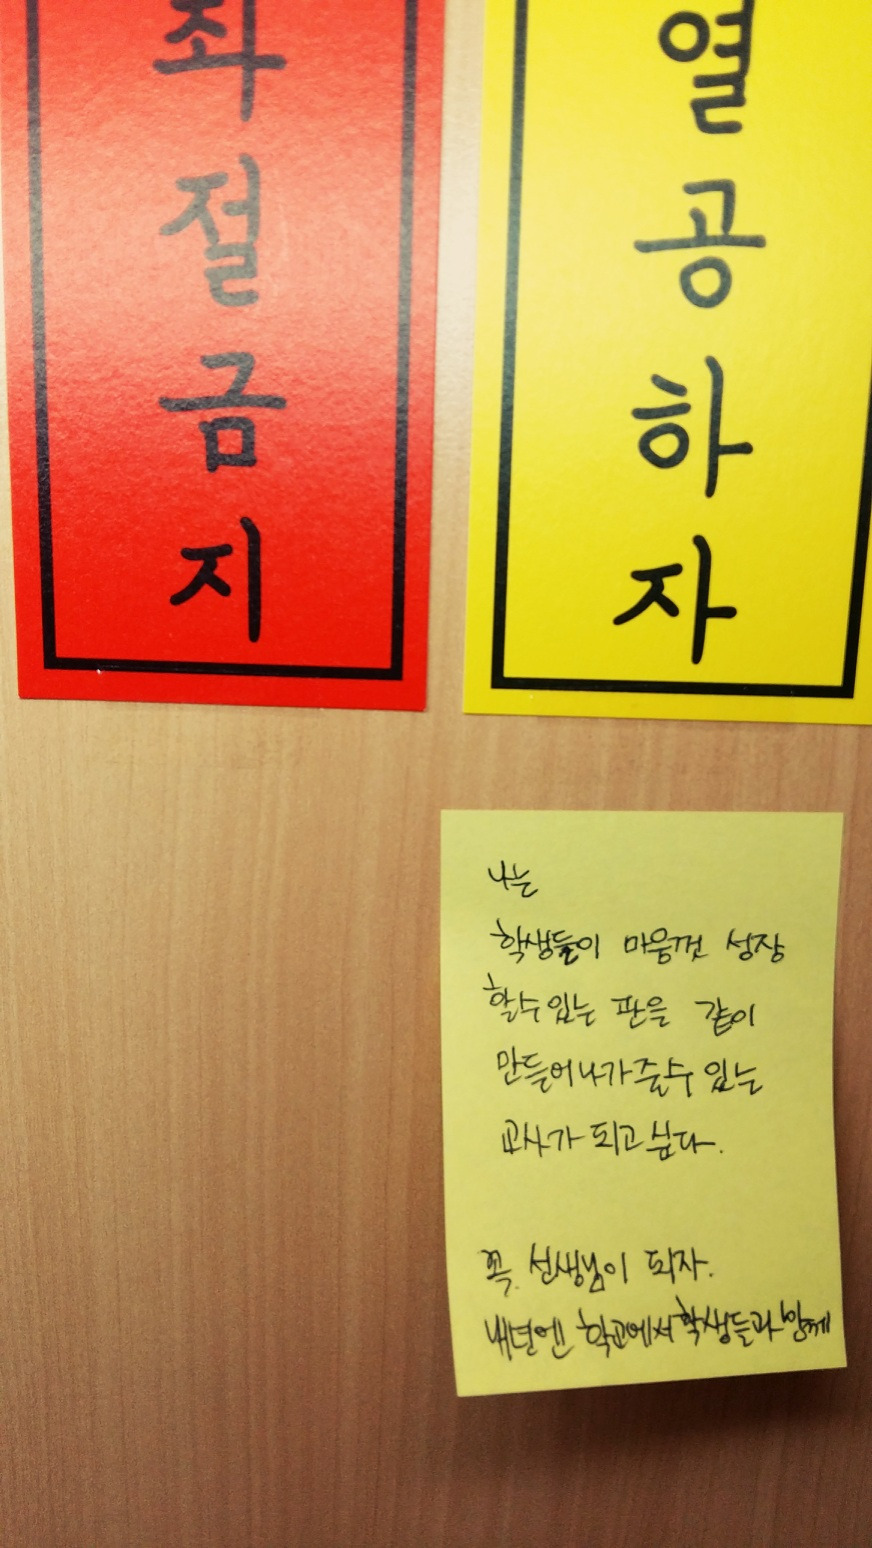 좌절금지
열공하자
나는
학생들이 마음껏 성장
할수있는 판을 같이
만들어나가줄수 있는
교사가 되고싶다.
꼭. 선생님이 되자.
내년엔 학교에서 학생들과 함께